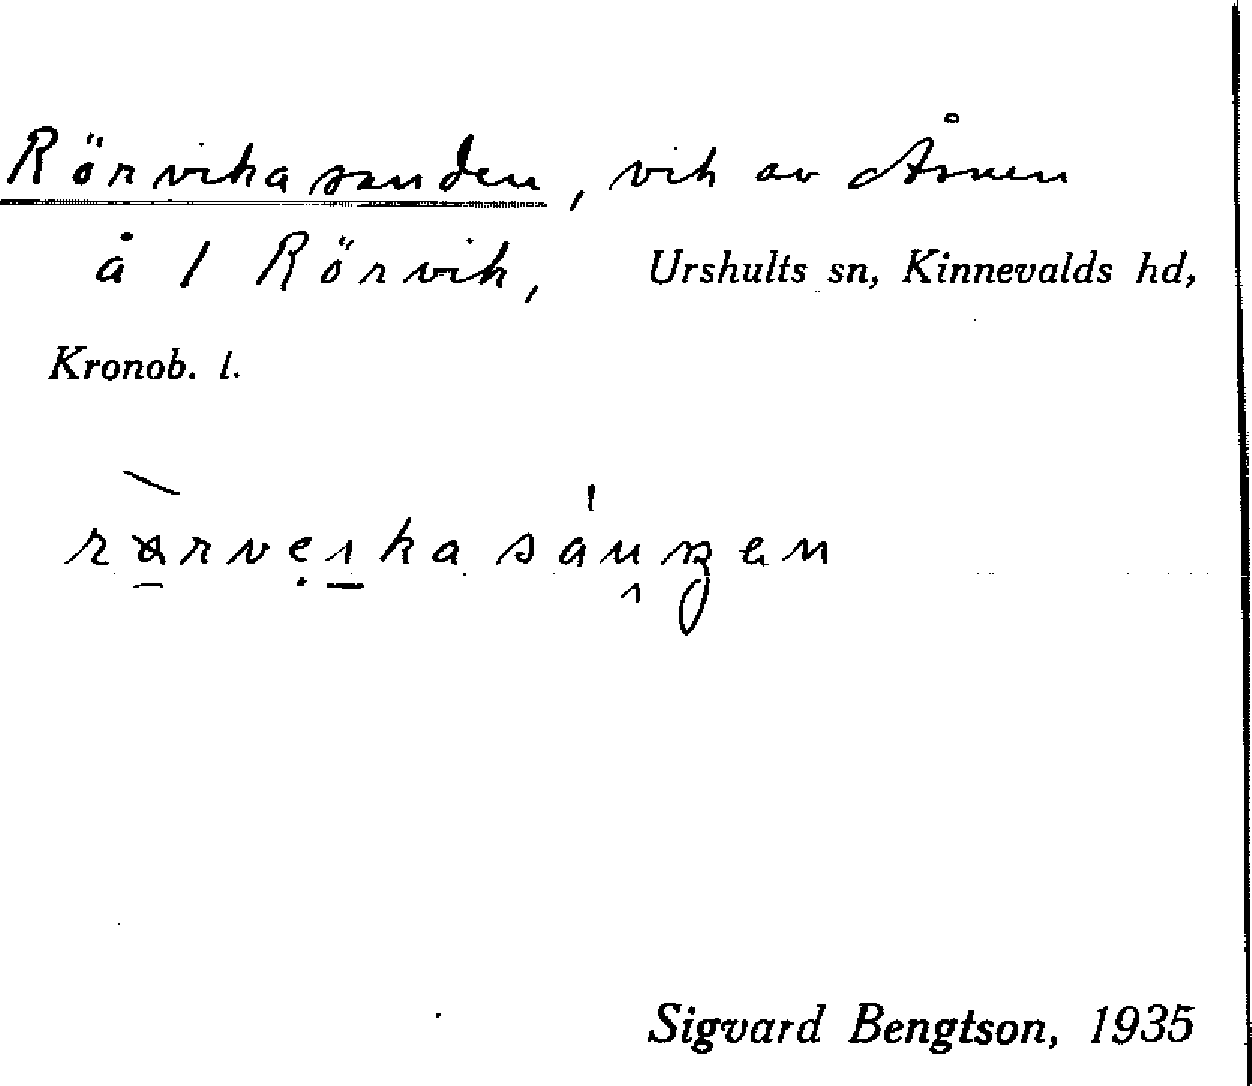 Rörvikasanden, vik av Åsnen
å 1 Rörvik, Urshults sn, Kinnevalds hd,
Kronob. l.
Sigvard Bengtson, 1935